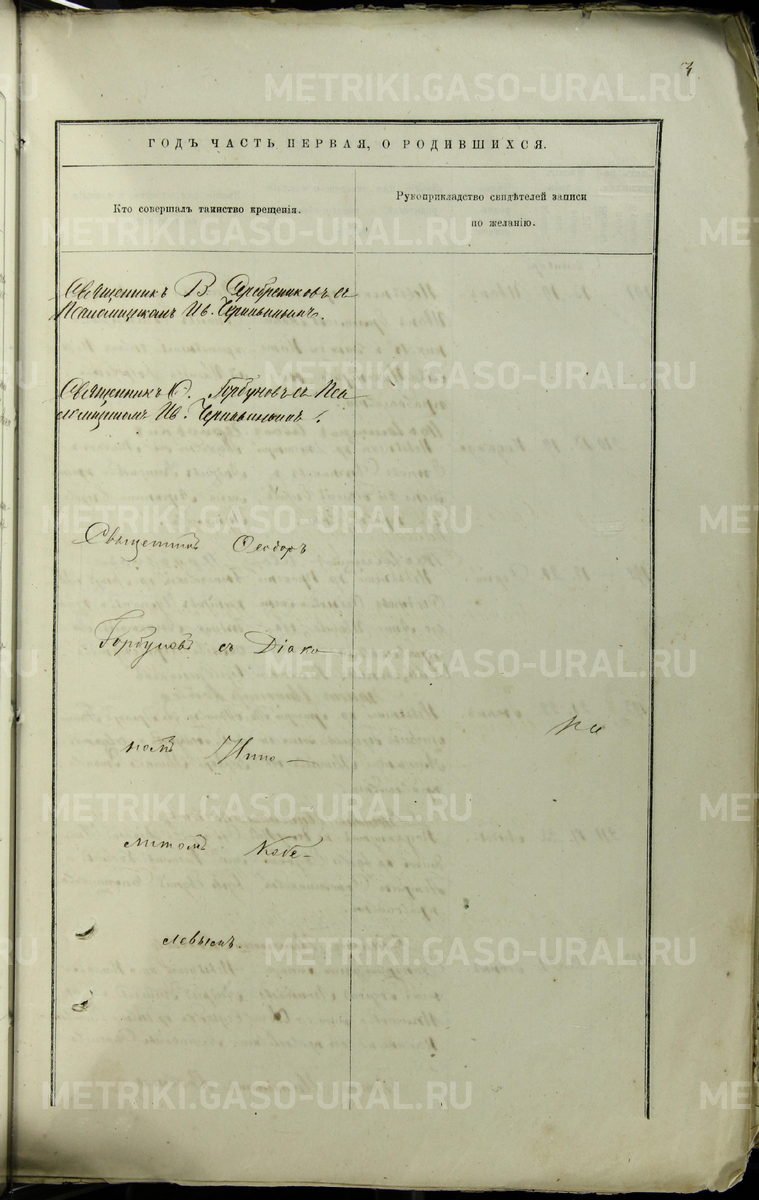 ГОДЪ ЧАСТЬ ПЕРВАЯ, О РОДИВШИХСЯ.
Кто совершалъ таинство крещенія.
Рукоприкладство свидѣтелей записи
по желанію.
Священникъ В. Серебрениковъ съ
Псаломщикомъ Ив.
Священникъ Ѳ. Горбуновъ съ Пса
ломщикомъ Ив.
Священникъ Ѳеодоръ
Горбуновъ съ Діако
номъ Иппо-
литомъ Кобе-
левымъ.
METRIKI.GASO-URAL.RU